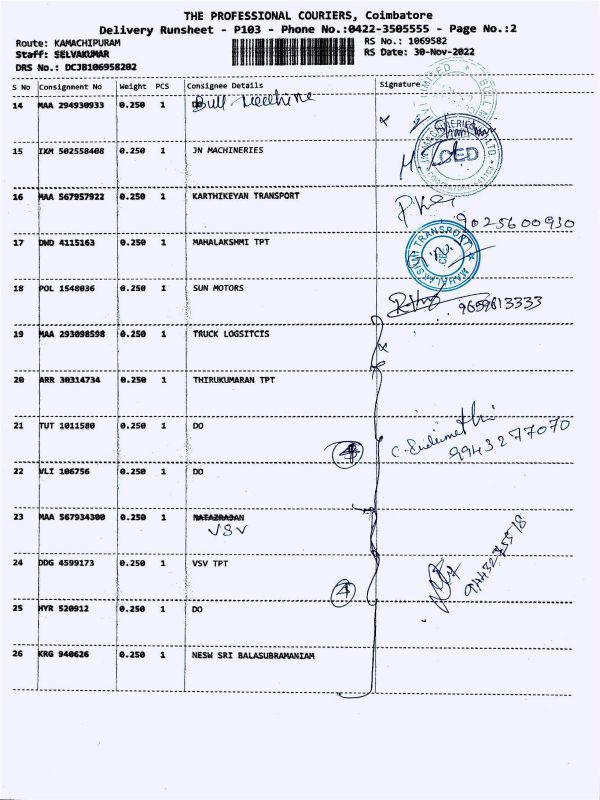 THE PROFESSIONAL COURIERS, Coimbatore
Delivery Runsheet - P103 - Phone No.:0422-3505555 - Page No.:2
Route: KAMACHIPURAM RS No.: 1069582
Staff: SELVAKUMAR RS Date: 30-Nov-2022
DRS No.: DCJB106958202
S No Consignment No Weight PCS Consignee Details Signature
14 MAA 294930933 0.250 1 Bull Machine
15 IXM 502558408 0.250 1 JN MACHINERIES
16 MAA 567957922 0.250 1 KARTHIKEYAN TRANSPORT
9025600930
17 DWD 4115163 0.250 1 MAHALAKSHMI TPT
MAHALAKSHMI TRANSPORT
18 POL 1548036 0.250 1 SUN MOTORS
9659813333
19 MAA 293098598 0.250 1 TRUCK LOGSITCIS
20 ARR 30314734 0.250 1 THIRUKUMARAN TPT
21 TUT 1011580 0.250 1 DO
9943277070
4
22 VLI 106756 0.250 1 DO
23 MAA 567934300 0.250 1 NATAZRAJAN
VSV
24 DDG 4599173 0.250 1 VSV TPT
4
25 HYR 520912 0.250 1 DO
26 KRG 940626 0.250 1 NESW SRI BALASUBRAMANIAM